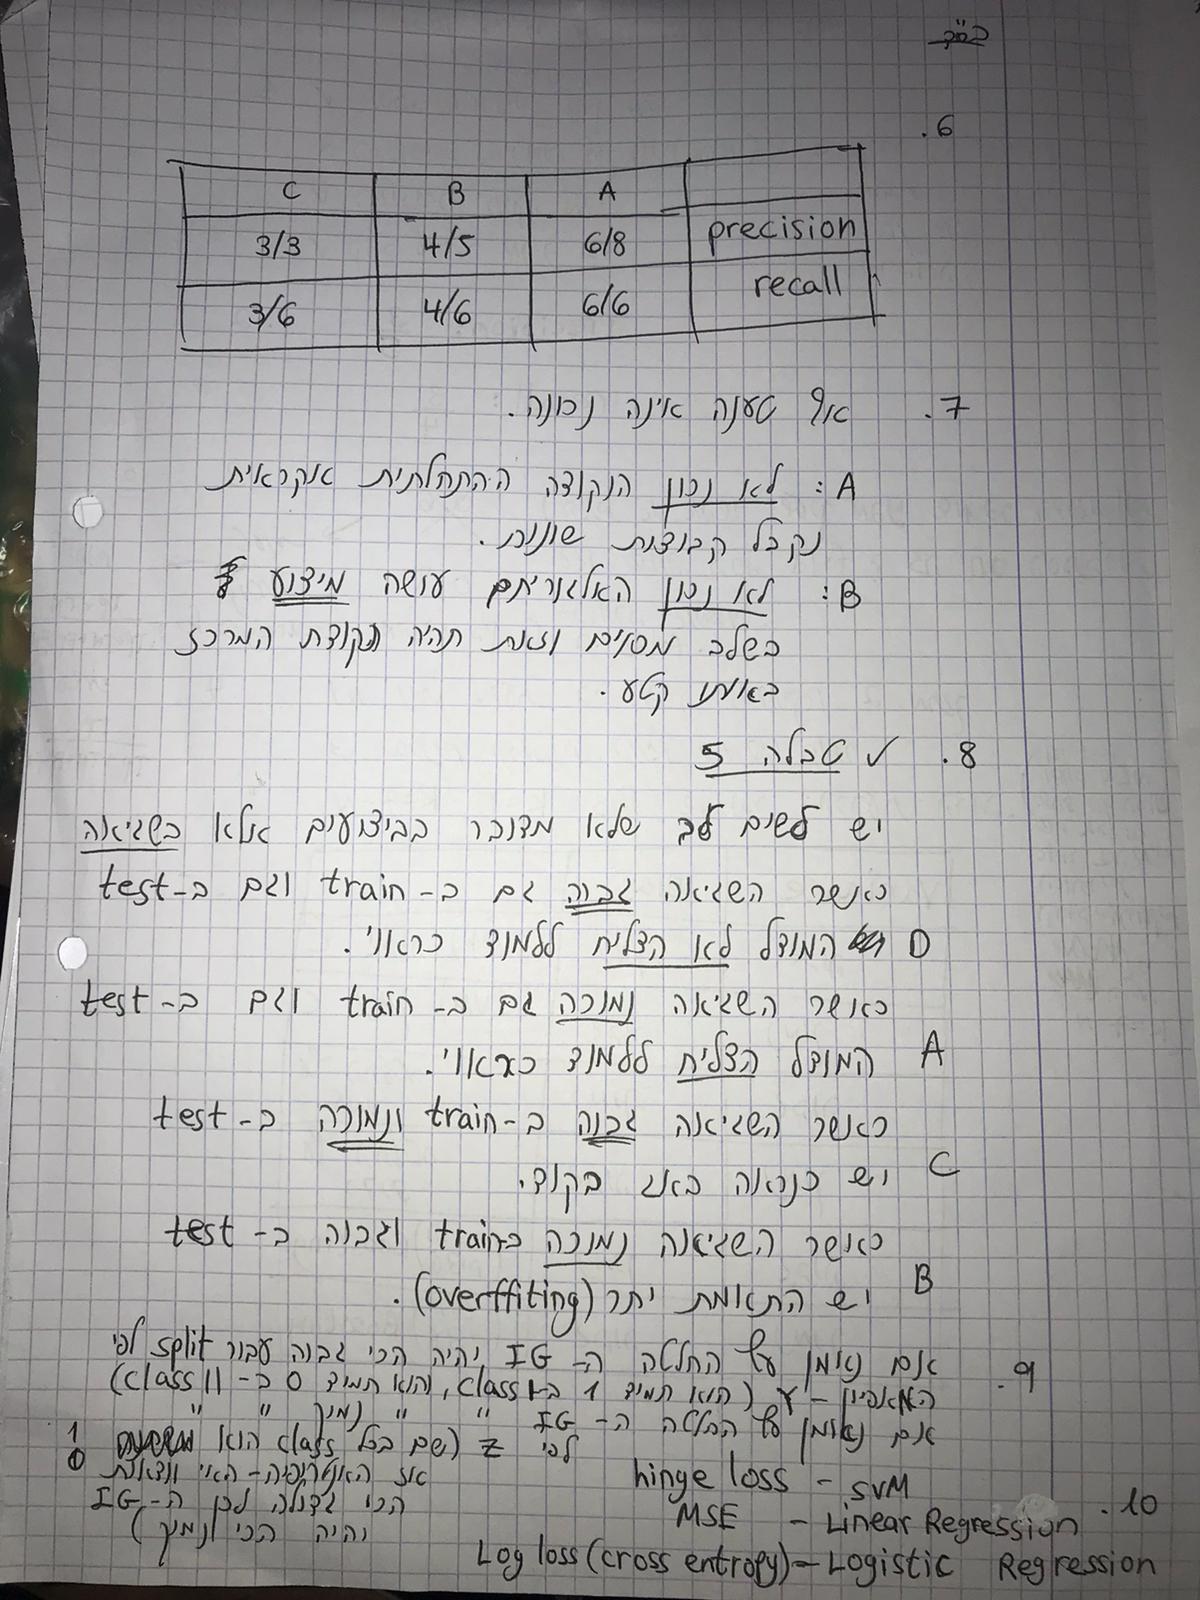 בס"ד
.6
C B A
3/3 4/5 6/8 precision
3/6 4/6 6/6 recall
.7 אף טענה אינה נכונה.
A: לא נכון הנקודה ההתחלתית אקראית
נקבל קבוצות שונות.
B: לא נכון האלגוריתם עושה מיצוע
בשלב מסוים וזאת תהיה נקודת המרכז
באותו קטע.
.8 ✓ טבלה 5
יש לשים לב שלא מדובר בביצועים אלא בשגיאה
כאשר השגיאה גבוה גם ב- train וגם ב- test
D המודל לא הצליח ללמוד כראוי.
כאשר השגיאה נמוכה גם ב- train וגם ב- test
A המודל הצליח ללמוד כראוי.
כאשר השגיאה גבוה ב- train ונמוכה ב- test
C יש כנראה באג בקוד.
כאשר השגיאה נמוכה ב-train וגבוה ב- test
B יש התאמת יתר (overffiting).
.9 אם נאמן עץ החלטה ה- IG יהיה הכי גבוה עבור split לפי
המאפיין - Y (הוא תמיד 1 ב-class I, והוא תמיד 0 ב- class II)
אם נאמן עץ החלטה ה- IG " " נמוך " "
לפי Z (שם בכל class הוא 1
0
אז האנטרופיה- האי וודאות
הכי גדולה לכן ה- IG
יהיה הכי נמוך)
.10 hinge loss - SVM
MSE - Linear Regression
Log loss (cross entropy) - Logistic Regression